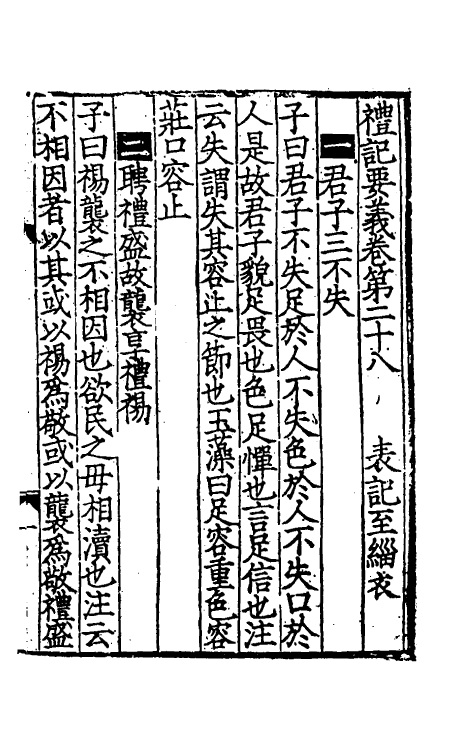 禮記要義卷第二十八　表記至緇衣
一君子三不失
子曰君子不失足於人不失色於人不失口於
人是故君子貌足畏也色足憚也言足信也注
云失謂失其容止之節也玉藻曰足容重色容
莊口容止
二聘禮盛故襲享禮裼
子曰裼襲之不相因也欲民之毋相瀆也注云
不相因者以其或以裼爲敬或以襲爲敬禮盛